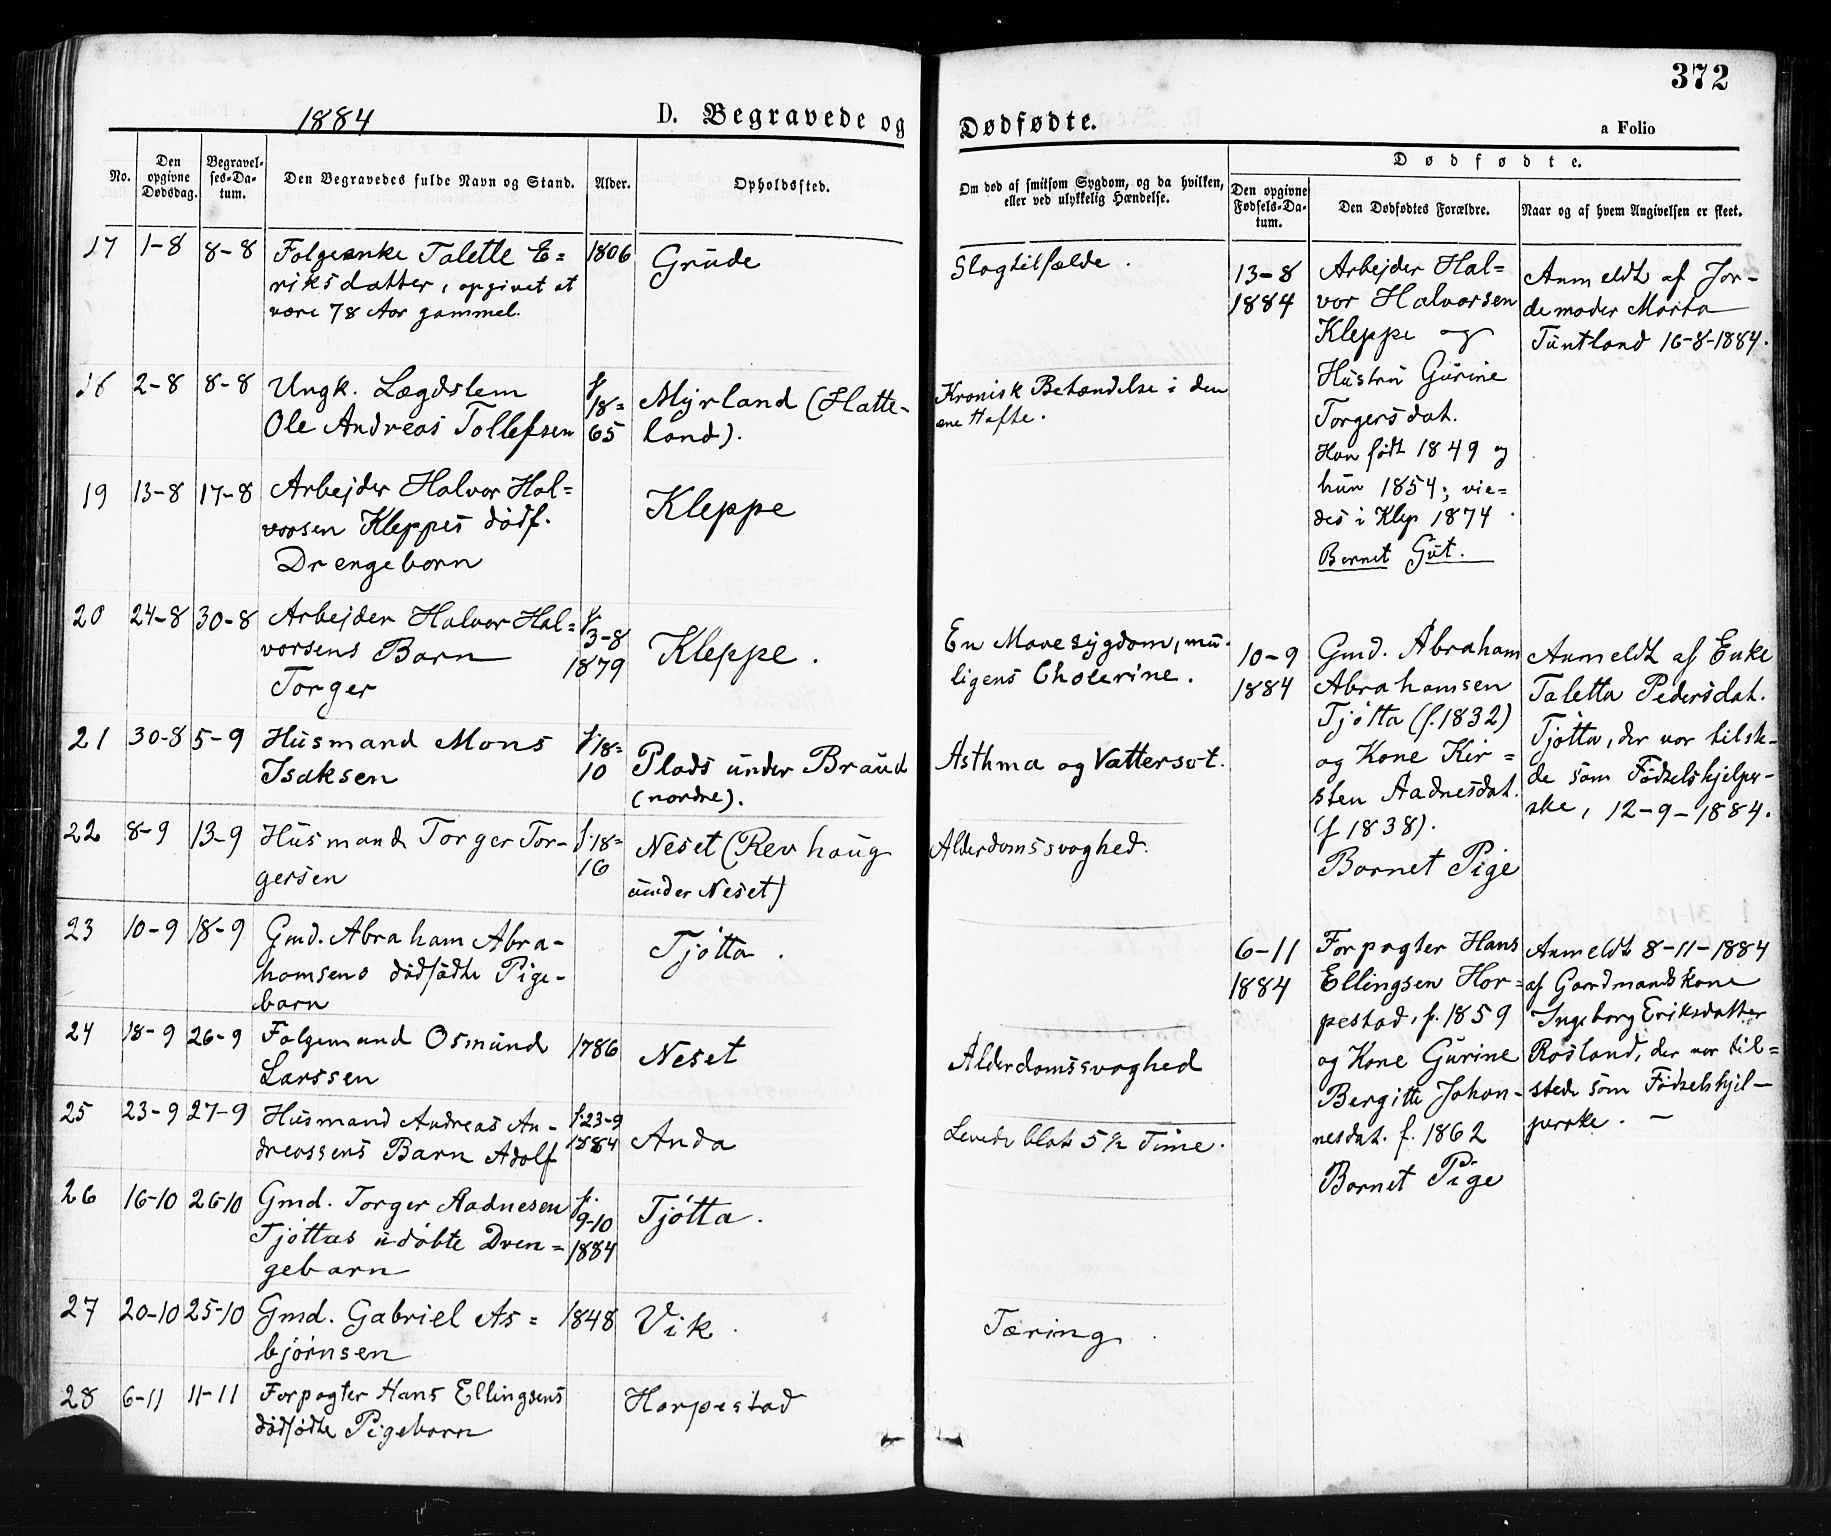 372
1884
D. Begravede og Dødfødte.
a Folio
No.
Den opgivne Dødsdag.
Begravelses-Datum.
Den Begravedes fulde Navn og Stand.
Alder.
Opholdssted.
Om død af smitsom Sygdom, og da hvilken,
eller ved ulykkelig Hændelse.
Dødfødte.
Den opgivne Fødsels-Datum.
Den Dødfødtes Forældre.
Naar og af hvem Angivelsen er skeet.
17 1-8 8-8 Folgeenke Talette E= 1806 Grude Slagtilfælde.
riksdatter, opgivet at
være 78 Aar gammel.
18 2-8 8-8 Ungk. Lægdslem f. 18= Myrland (Hatte- Kronisk Betændelse i den
Ole Andreas Tollefsen 65 land). ene Hofte.
19 13-8 17-8 Arbejder Halvor Hal= Kleppe
vorsen Kleppes dødf.
Drengebarn
20 24-8 30-8 Arbejder Halvor Hal= f. 3-8 Kleppe. En Mavesygdom, mu-
vorsens Barn 1879 ligens Cholerine.
Torger
21 30-8 5-9 Husmand Mons f. 18= Plads under Braud Asthma og Vattersot.
Isaksen 10 (nordre).
22 8-9 13-9 Husmand Torger Tor- f. 18= Neset (Revhaug Alderdomssvaghed.
gersen 16 under Neset)
23 10-9 18-9 Gmd. Abraham Abra- Tjøtta.
hamsens dødfødte Pige-
barn
24 18-9 26-9 Folgemand Osmund 1786 Neset Alderdomssvaghed
Larssen
25 23-9 27-9 Husmand Andreas An- f. 23-9 Anda Levede blot 5 1/2 Time.
dreassens Barn Adolf 1884
26 16-10 26-10 Gmd. Torger Aadnesen f. 9-10 Tjøtta.
Tjøttas udøbte Dren= 1884
gebarn
27 20-10 25-10 Gmd. Gabriel As= 1848 Vik. Tæring.
bjørnsen
28 6-11 11-11 Forpagter Hans Ellingsens Horpestad
dødfødte Pigebarn
13-8
1884
Arbejder Hal=
vor Halvorsen
Kleppe og
Hustru Gurine
Torgersdat.
Han født 1849 og
hun 1854; vie=
des i Klep 1874.
Barnet Gut.
Anmeldt af Jor-
demoder Marta
Tuntland 16-8-1884.
10-9
1884
Gmd. Abraham
Abrahamsen
Tjøtta (f. 1832)
og Kone Kir=
sten Aadnesdat.
(f 1838).
Barnet Pige
Anmeldt af Enke
Taletta Pedersdat.
Tjøtta, der var tilste-
de som Fødselshjelper-
ske, 12-9-1884.
6-11
1884
Forpagter Hans
Ellingsen Hor=
pestad, f. 1859
og Kone Gurine
Bergitte Johan-
nesdat. f. 1862
Barnet Pige
Anmeldt 8-11-1884
af Gaardmandskone
Ingeborg Eriksdatter
Rosland, der var til=
stede som Fødselshjel-
perske. —